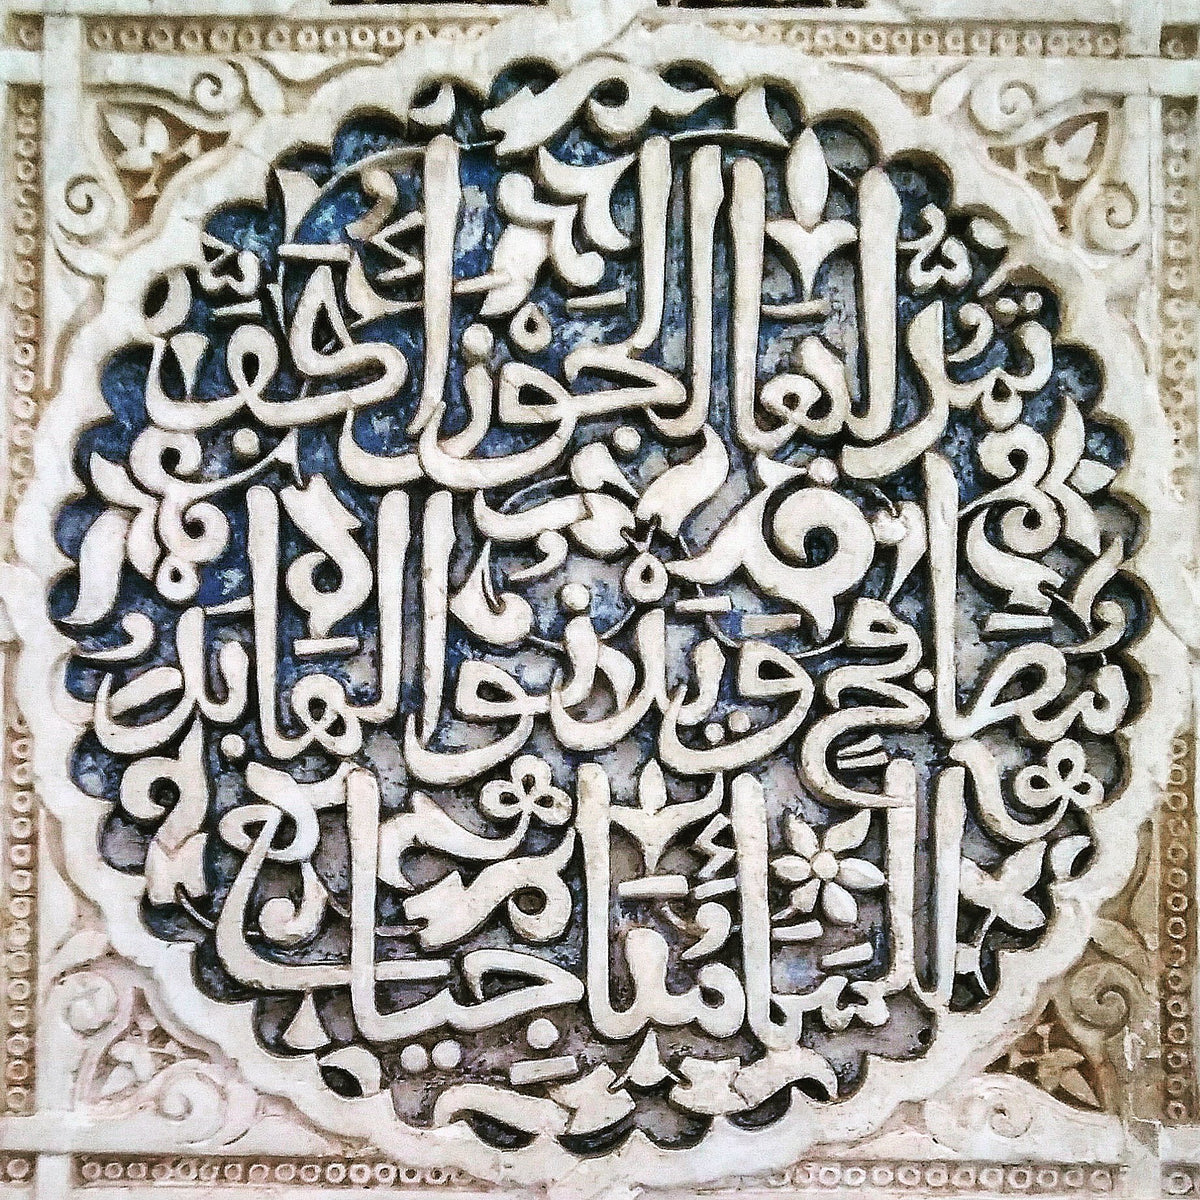 تمد لها الجوزاء كف
مصافح ويدنوا لها بدر
السماء مناجيا